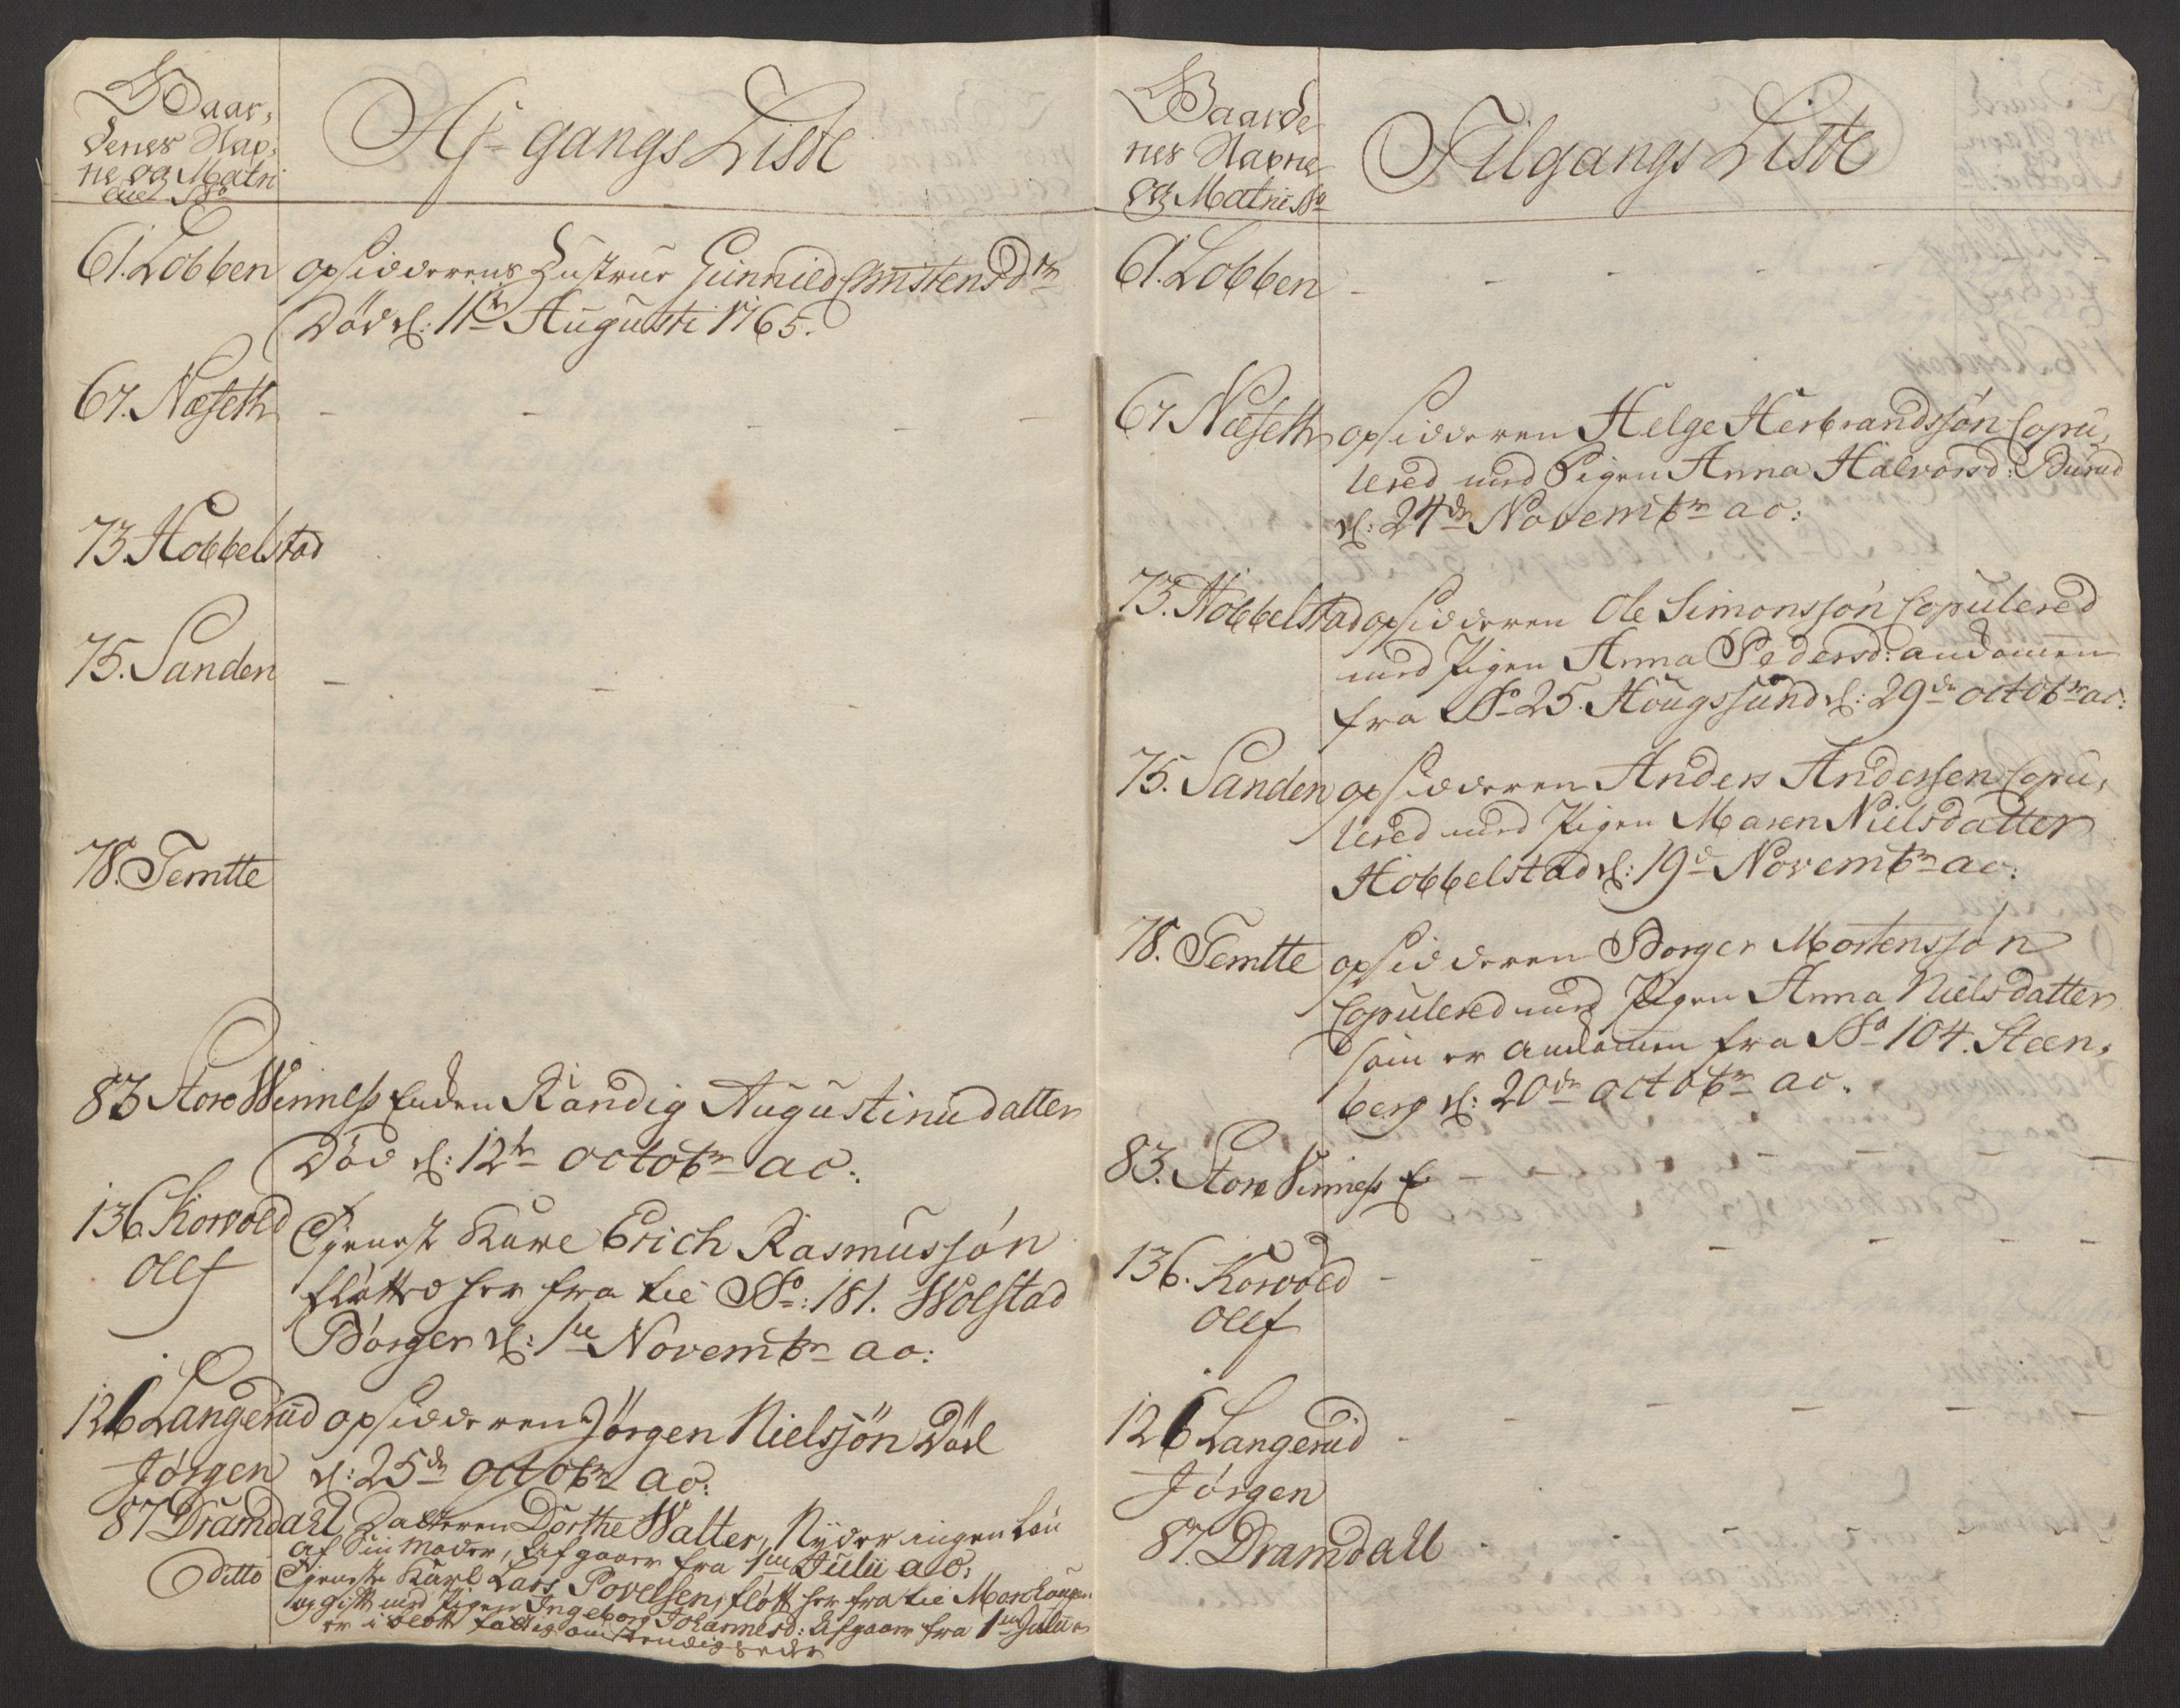 Gaar,
denes Nav,
ne og Matri
cul No
Af-gangs Liste
61. Lobben opsidderens Hustrue Gunnild Christensdtr
Død d: 11te Augusti 1765.
67. Næseth - - - - -
73. Hobbelstad
75. Sanden - -
78. Temtte
83 Store Winness Enken Randig Augustinudatter
Død d: 12te octobr ac:
136. Korvold Tjeneste Karl Erich Rasmussøn
Ollf fløtted her fra til No: 181. Wolstad
Børger d: 1te Novembr ao:
126 Langerud opsidderen Jörgen Nielsjön Död
Jørgen d: 25de octobr ao:
87 Dramdahl Datteren Dorthe Walter, Nyder ingen Løn
af Sin Moder, Afgaaer fra 1te Julii ao:
Ditto Tjeneste Karl Lars Povelsen, fløtt her fra til
og Gift med Pigen Ingeborg Johannesd: Afgaaer fra 1te Julii
er i slett fattig omstendigheder
Gaarde
nes Navne
og Matric No
Tilgangs Liste
61. Lobben - - - - -
67 Næseth opsidderen Helge Herbrandssøn Copu,
lered med Pigen Anna Halvorsd: Burud
d: 24de Novembr ao:
73. Hobbelstad opsidderen Ole Simonssøn Copulered
med Pigen Anna Pedersd: ankommen
fra No 25. Hougssund d: 29de octobr ac:
75. Sanden opsidderen Anders Andersen Copu,
lered med Pigen Maren Nielsdatter
Hobbelstad d: 19de Novembr ao:
78. Temtte opsidderen Borger Mortenssøn
Copulered med Pigen Anna Nielsdatter
som er ankommen fra No 104. Steen,
berg d: 20de octobr ao.
83. Store Vinness - - - -
136. Korvold - - - - - -
Ollf
126 Langerud - - - - - -
Jørgen
87. Dramdahl - - - - -